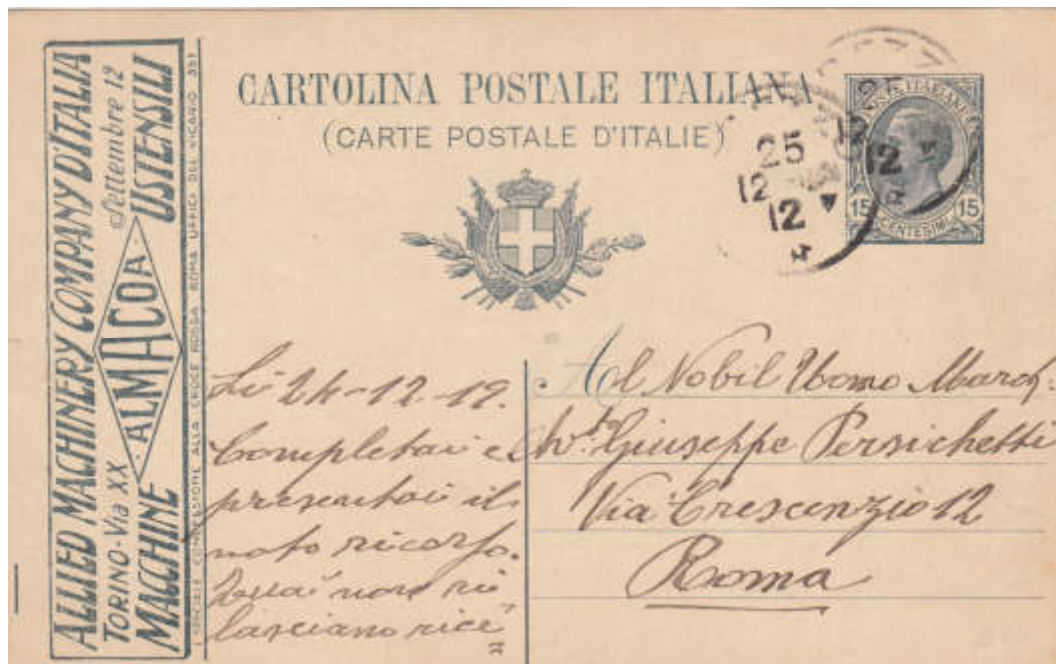 ALLIED MACHINERY COMPANY D'ITALIA
TORINO - Via XX Settembre 12
MACCHINE ALMACOA USTENSILI
SPECIALE CONCESSIONE ALLA CROCE ROSSA ROMA UFFICI DEL VICARIO
CARTOLINA POSTALE ITALIANA
(CARTE POSTALE D'ITALIE)
POSTE ITALIANE
15 15
CENTESIMI
25
12
12
12
12
Li 24-12-19.
Completai e
presentai il
noto ricorso.
non si
lasciano rice=
Al Nobil Uomo March.
Giuseppe Persichetti
Via Crescenzio 12
Roma